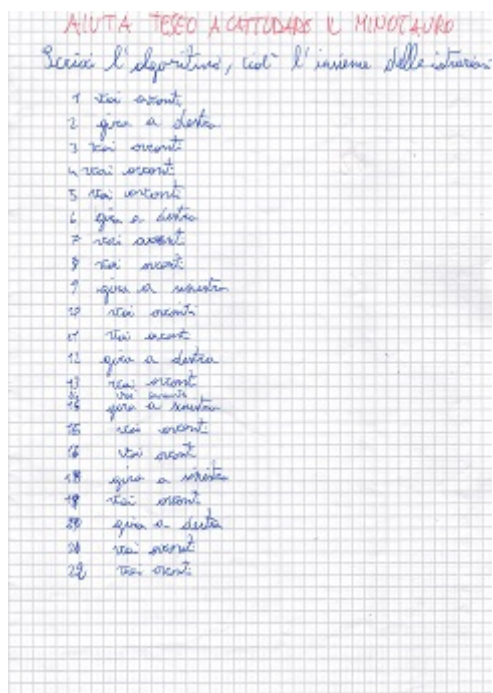 AIUTA TESEO A CATTURARE IL MINOTAURO
Scrivi l'algoritmo, cioè l'insieme delle istruzioni
1 vai avanti
2 gira a destra
3 vai avanti
4 vai avanti
5 vai avanti
6 gira a destra
7 vai avanti
8 vai avanti
9 gira a sinistra
10 vai avanti
11 vai avanti
12 gira a destra
13 vai avanti
vai avanti
gira a sinistra
15 vai avanti
16 vai avanti
18 gira a sinistra
19 vai avanti
20 gira a destra
vai avanti
22 vai avanti